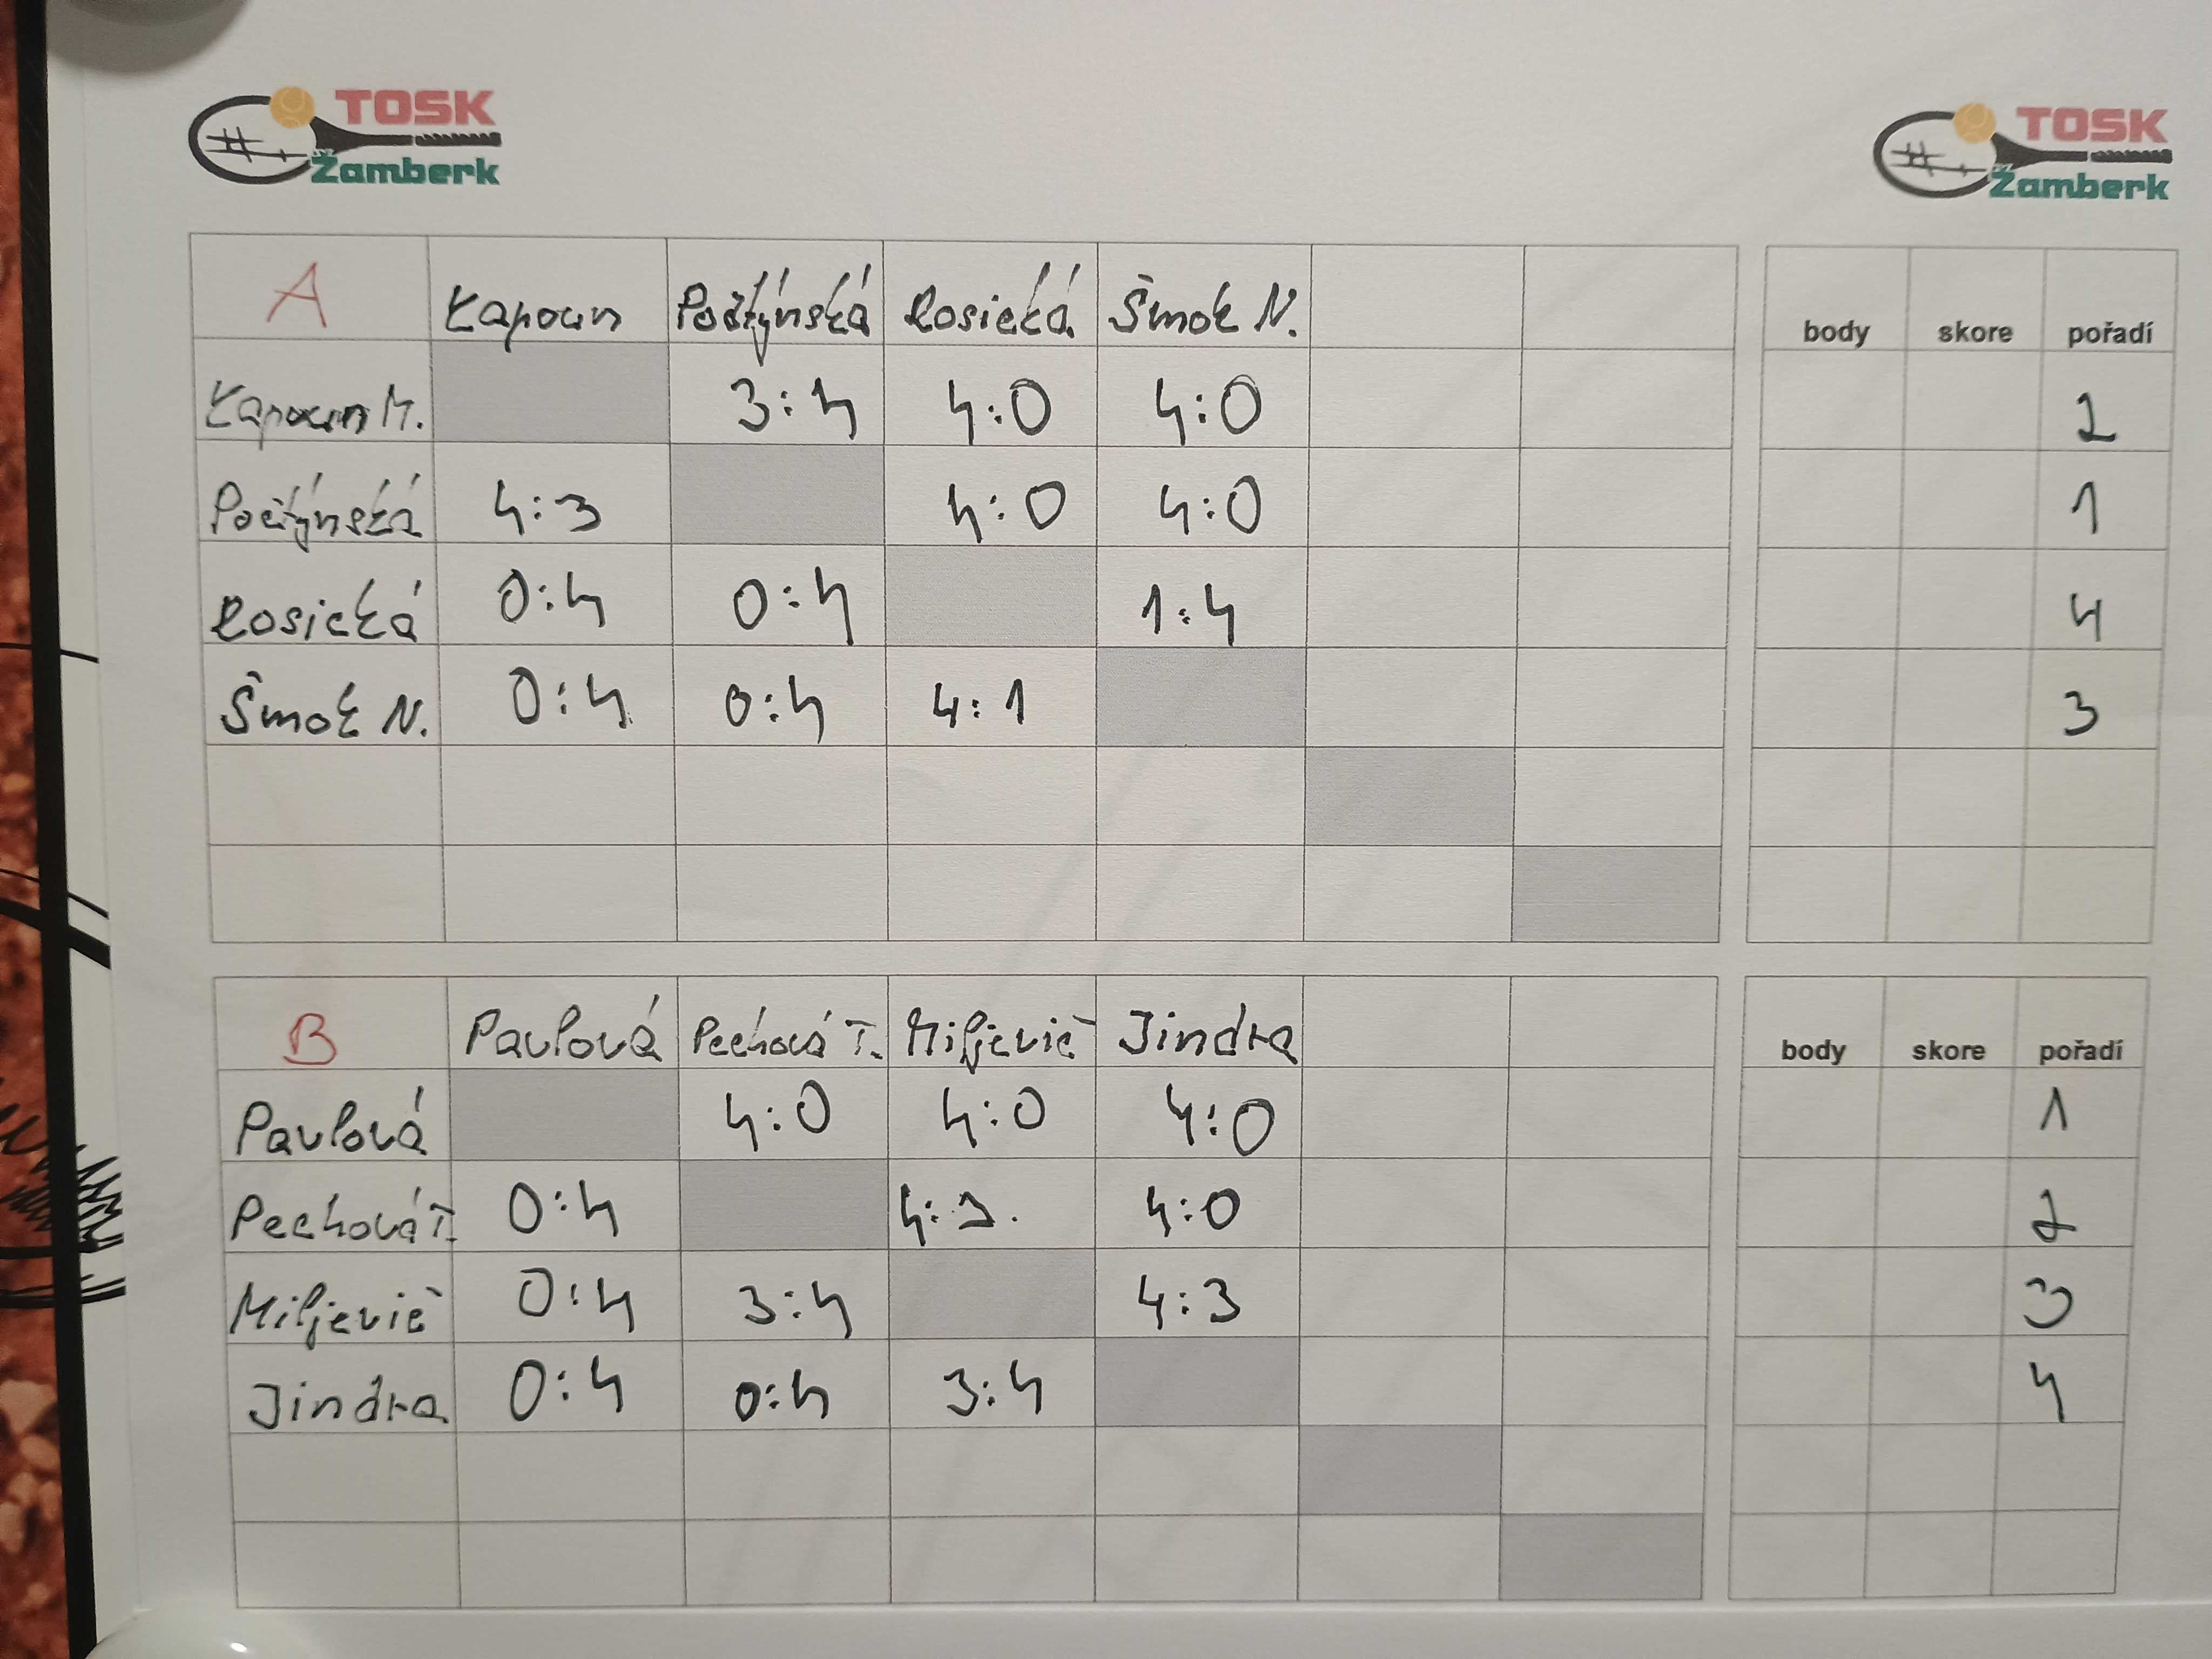 TOSK
Žamberk
TOSK
Žamberk
A Kapoun Počtýnská Rosická Šmok N. body skore pořadí
Kapoun M. 3:4 4:0 4:0 2
Počtýnská 4:3 4:0 4:0 1
Rosická 0:4 0:4 1:4 4
Šmok N. 0:4 0:4 4:1 3
B Pavlová Pechová T. Miljevič Jindra body skore pořadí
Pavlová 4:0 4:0 4:0 1
Pechová T. 0:4 4:3. 4:0 2
Miljevič 0:4 3:4 4:3 3
Jindra 0:4 0:4 3:4 4